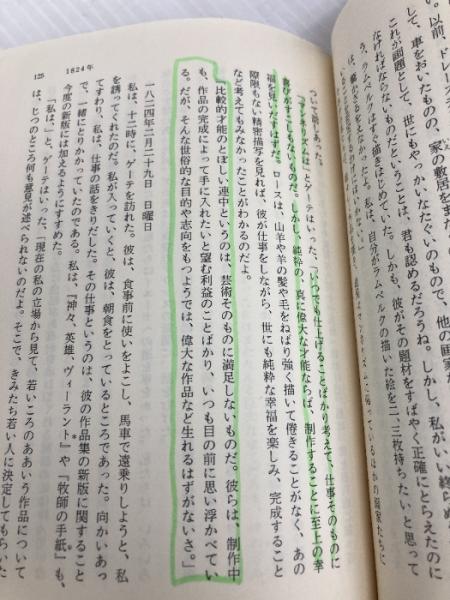 い。以前、ドレーズ
して、車をおいたものの、家の敷居をまた
これが画題として、世にもやっかいなたぐいのもので、他の画
なければならないものだということは、君も認めるだろうね。しかし、私がいい終らぬ
ラムベルクはすでに描きはじめていた。しかも、彼がその題材をすばやく正確にとらえたのに
は、驚かざるをえなかったよ。私は、自分がラムベルクの描いた絵を二、三枚持ちたいと思って
ほかの画家たちに
ついて話しあった。
「マンネリズムは」とゲーテはいった、「いつでも仕上げることばかり考えて、仕事そのものに
喜びがすこしもないものだ。しかし、純粋の、真に偉大な才能ならば、制作することに至上の幸
福を見いだすはずだ。ロースは、山羊や羊の髪や毛をねばり強く描いて倦きることがなく、あの
際限もない精密描写を見れば、彼が仕事をしながら、世にも純粋な幸福を楽しみ、完成すること
など考えてもみなかったことがわかるのだよ。
比較的才能のとぼしい連中というのは、芸術そのものに満足しないものだ。彼らは、制作中
も、作品の完成によって手に入れたいと望む利益のことばかり、いつも目の前に思い浮かべてい
る。だが、そんな世俗的な目的や志向をもつようでは、偉大な作品など生れるはずがないさ。」
一八二四年二月二十九日 日曜日
私は、十二時に、ゲーテを訪れた。彼は、食事前に使いをよこし、馬車で遠乗りしようと、私
を誘ってくれたのだ。私が入っていくと、彼は、朝食をとっているところであった。向かいあっ
てすわり、私は、仕事の話をきりだした。その仕事というのは、彼の作品集の新版に関すること
で、一緒にとりかかっていたのである。私は、『神々、英雄、ヴィーラント*』や『牧師の手紙』も、
今度の新版には加えるようにすすめた。
「私は、」と、ゲーテはいった、「現在の私の立場から見て、若いころのああいう作品について
は、じつのところ何も意見が述べられないのだよ。そこで、きみたち若い人に決定してもらいた
125 1824年